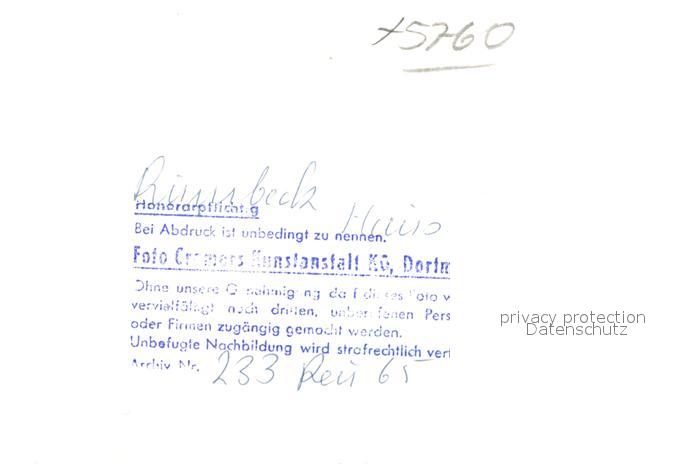 +5760
Rimbeck
Honorarpflichtig
Haus
Bei Abdruck ist unbedingt zu nennen.
Foto Cramers Kunstanstalt KG, Dortm
Ohne unsere Genehmigung darf dieses Foto v
vervielfältigt noch dritten, unberufenen Pers
oder Firmen zugängig gemacht werden.
Unbefugte Nachbildung wird strafrechtlich verf
Archiv Nr. 233 Reü 65
privacy protection
Datenschutz